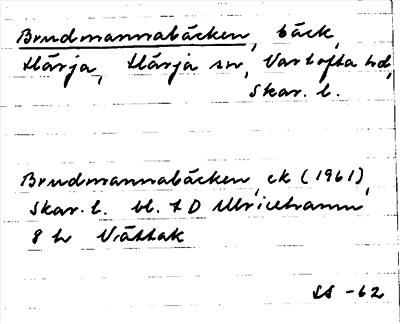 Brudmannabäcken, bäck,
Härja, Härja sn, Vartofta hd,
Skar. l.
Brudmannabäcken, ek (1961),
Skar. l. bl. 7 D Ulricehamn
8 h Vättak
SS -62